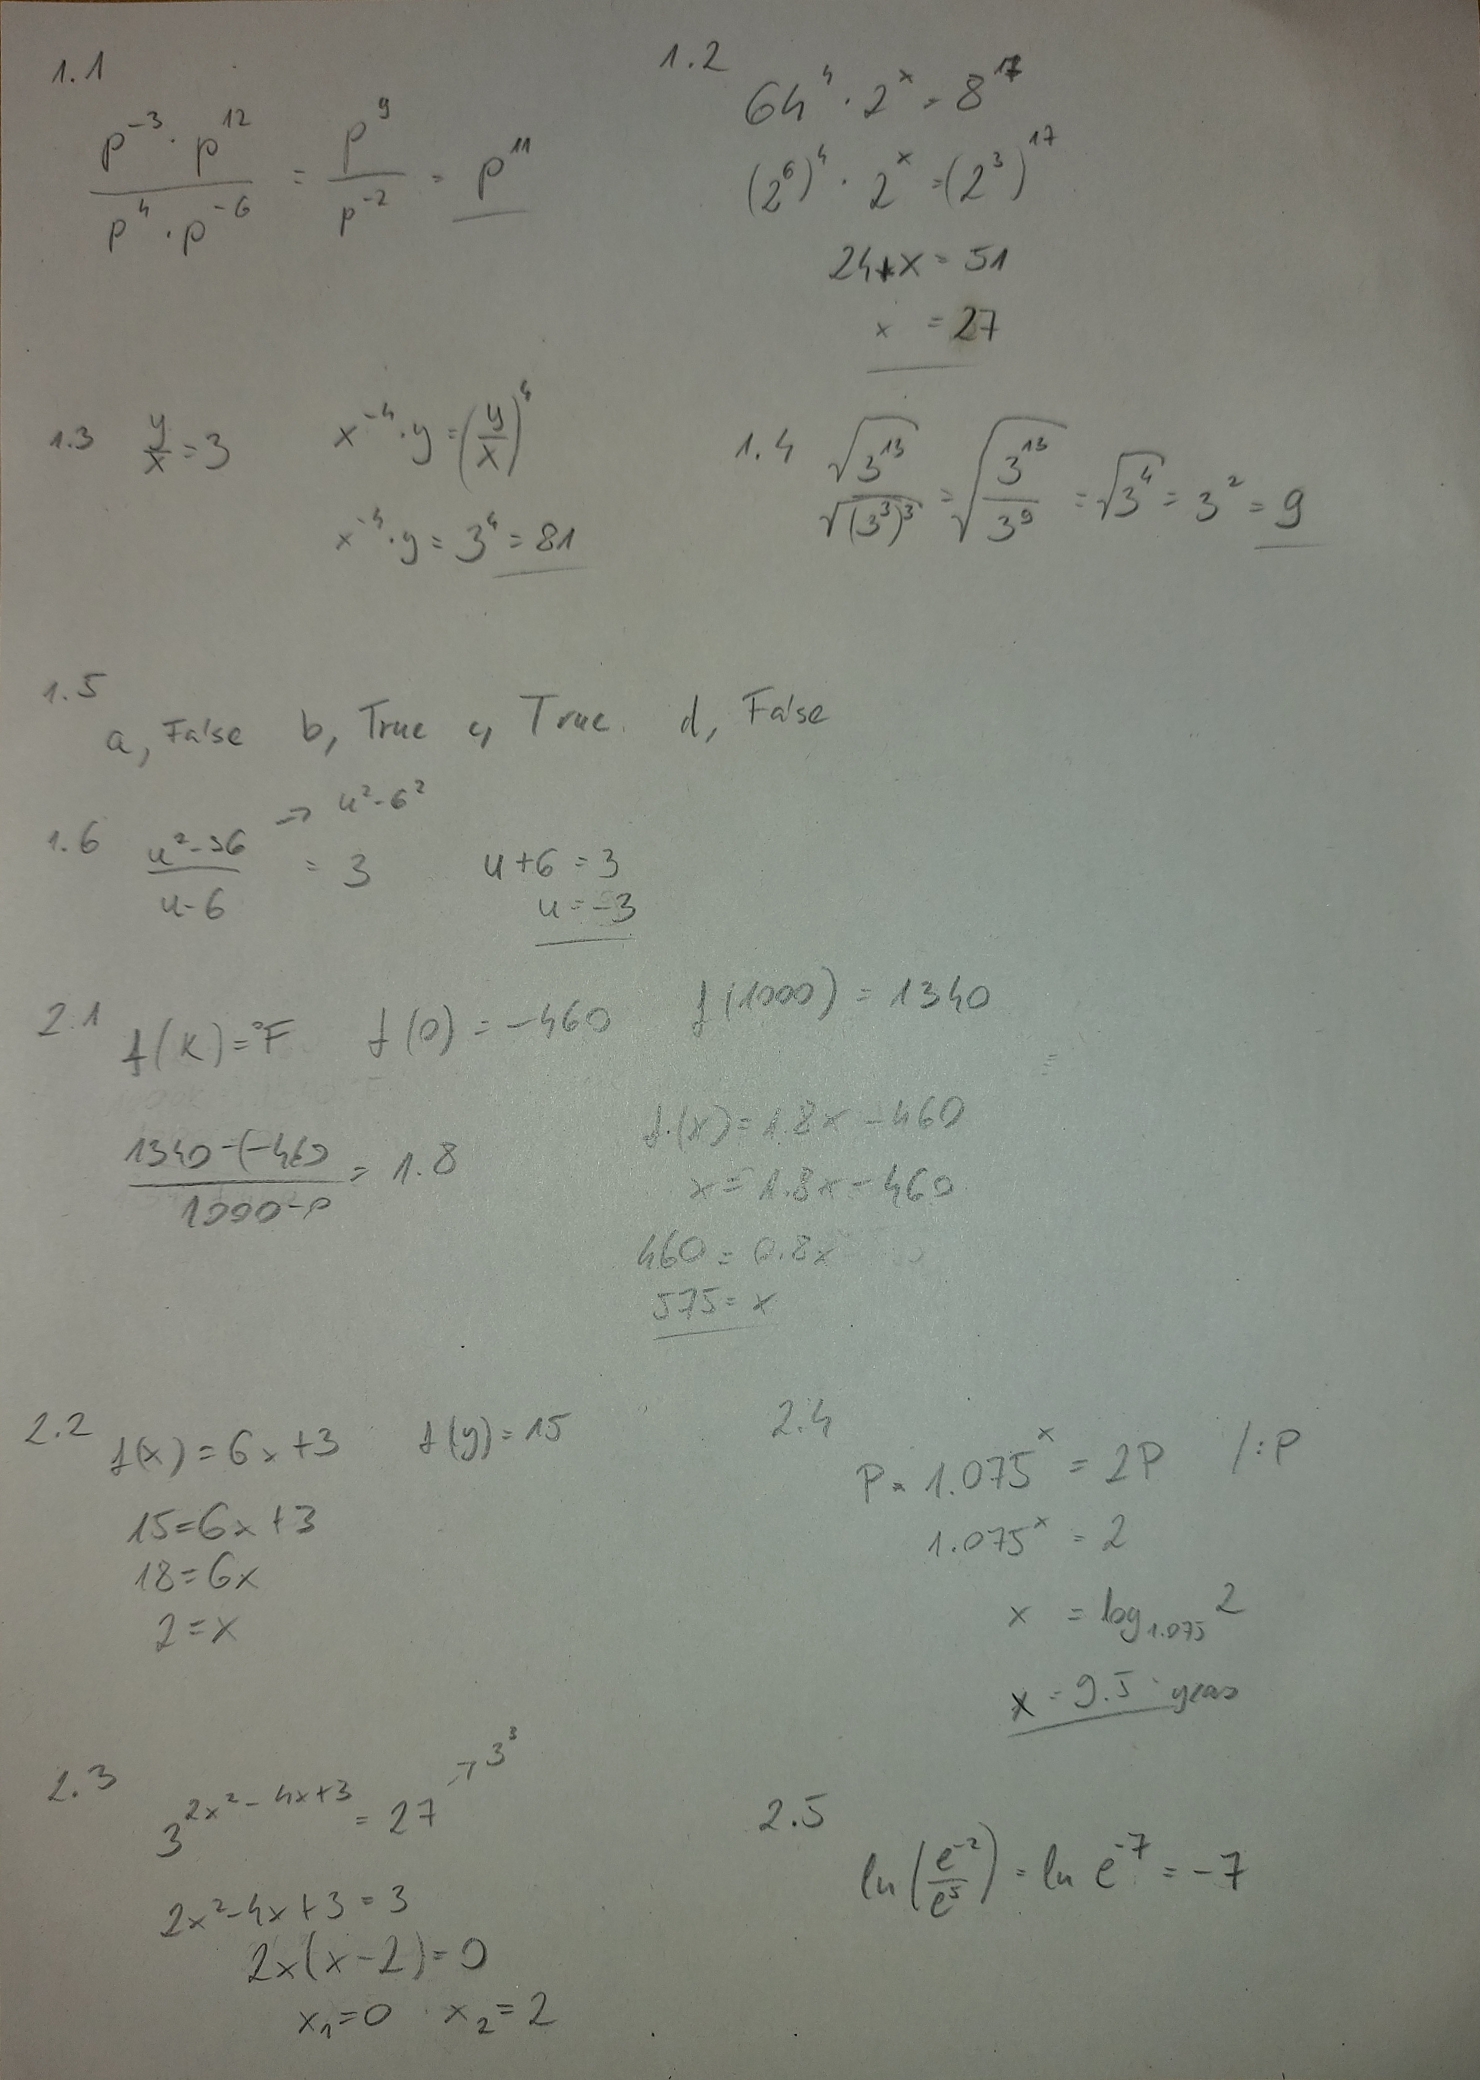 1.1
p⁻³ · p¹² / p⁴ · p⁻⁶ = p⁹ / p⁻² = p¹¹
1.2
64⁴ · 2ˣ = 8¹⁷
(2⁶)⁴ · 2ˣ = (2³)¹⁷
24+x = 51
x = 27
1.3 y/x = 3 x⁻⁴ · y = (y/x)⁴
x⁻⁴ · y = 3⁴ = 81
1.4 √3¹³ / √(3³)³ = √(3¹³ / 3⁹) = √3⁴ = 3² = 9
1.5
a, False b, True c, True. d, False
1.6 u²-36 / u-6 = 3 → u²-6²
u+6 = 3
u = -3
2.1 f(K) = °F f(0) = -460 f(1000) = 1340
1340-(-460 / 1000-0 = 1.8
f(x) = 1.8x - 460
x = 1.8x - 460
460 = 0.8x
575 = x
2.2 f(x) = 6x+3 f(y) = 15
15 = 6x+3
18 = 6x
2 = x
2.4
P · 1.075ˣ = 2P /:P
1.075ˣ = 2
x = log₁.₀₇₅ 2
x = 9.5 years
2.3
3^(2x²-4x+3) = 27 → 3³
2x²-4x+3 = 3
2x(x-2) = 0
x₁=0 x₂=2
2.5
ln(e⁻²/e⁵) = ln e⁻⁷ = -7